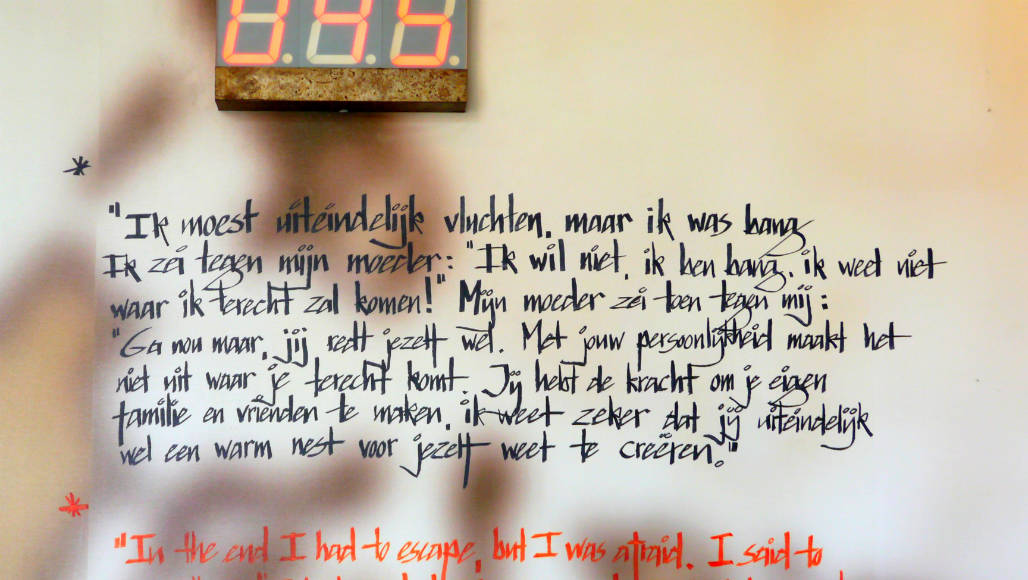 045
"Ik moest uiteindelijk vluchten, maar ik was bang
Ik zei tegen mijn moeder: "Ik wil niet, ik ben bang, ik weet niet
waar ik terecht zal komen!" Mijn moeder zei toen tegen mij:
"Ga nou maar, jij redt jezelf wel. Met jouw persoonlijkheid maakt het
niet uit waar je terecht komt. Jij hebt de kracht om je eigen
familie en vrienden te maken, ik weet zeker dat jij uiteindelijk
wel een warm nest voor jezelf weet te creëren."
"In the end I had to escape, but I was afraid. I said to